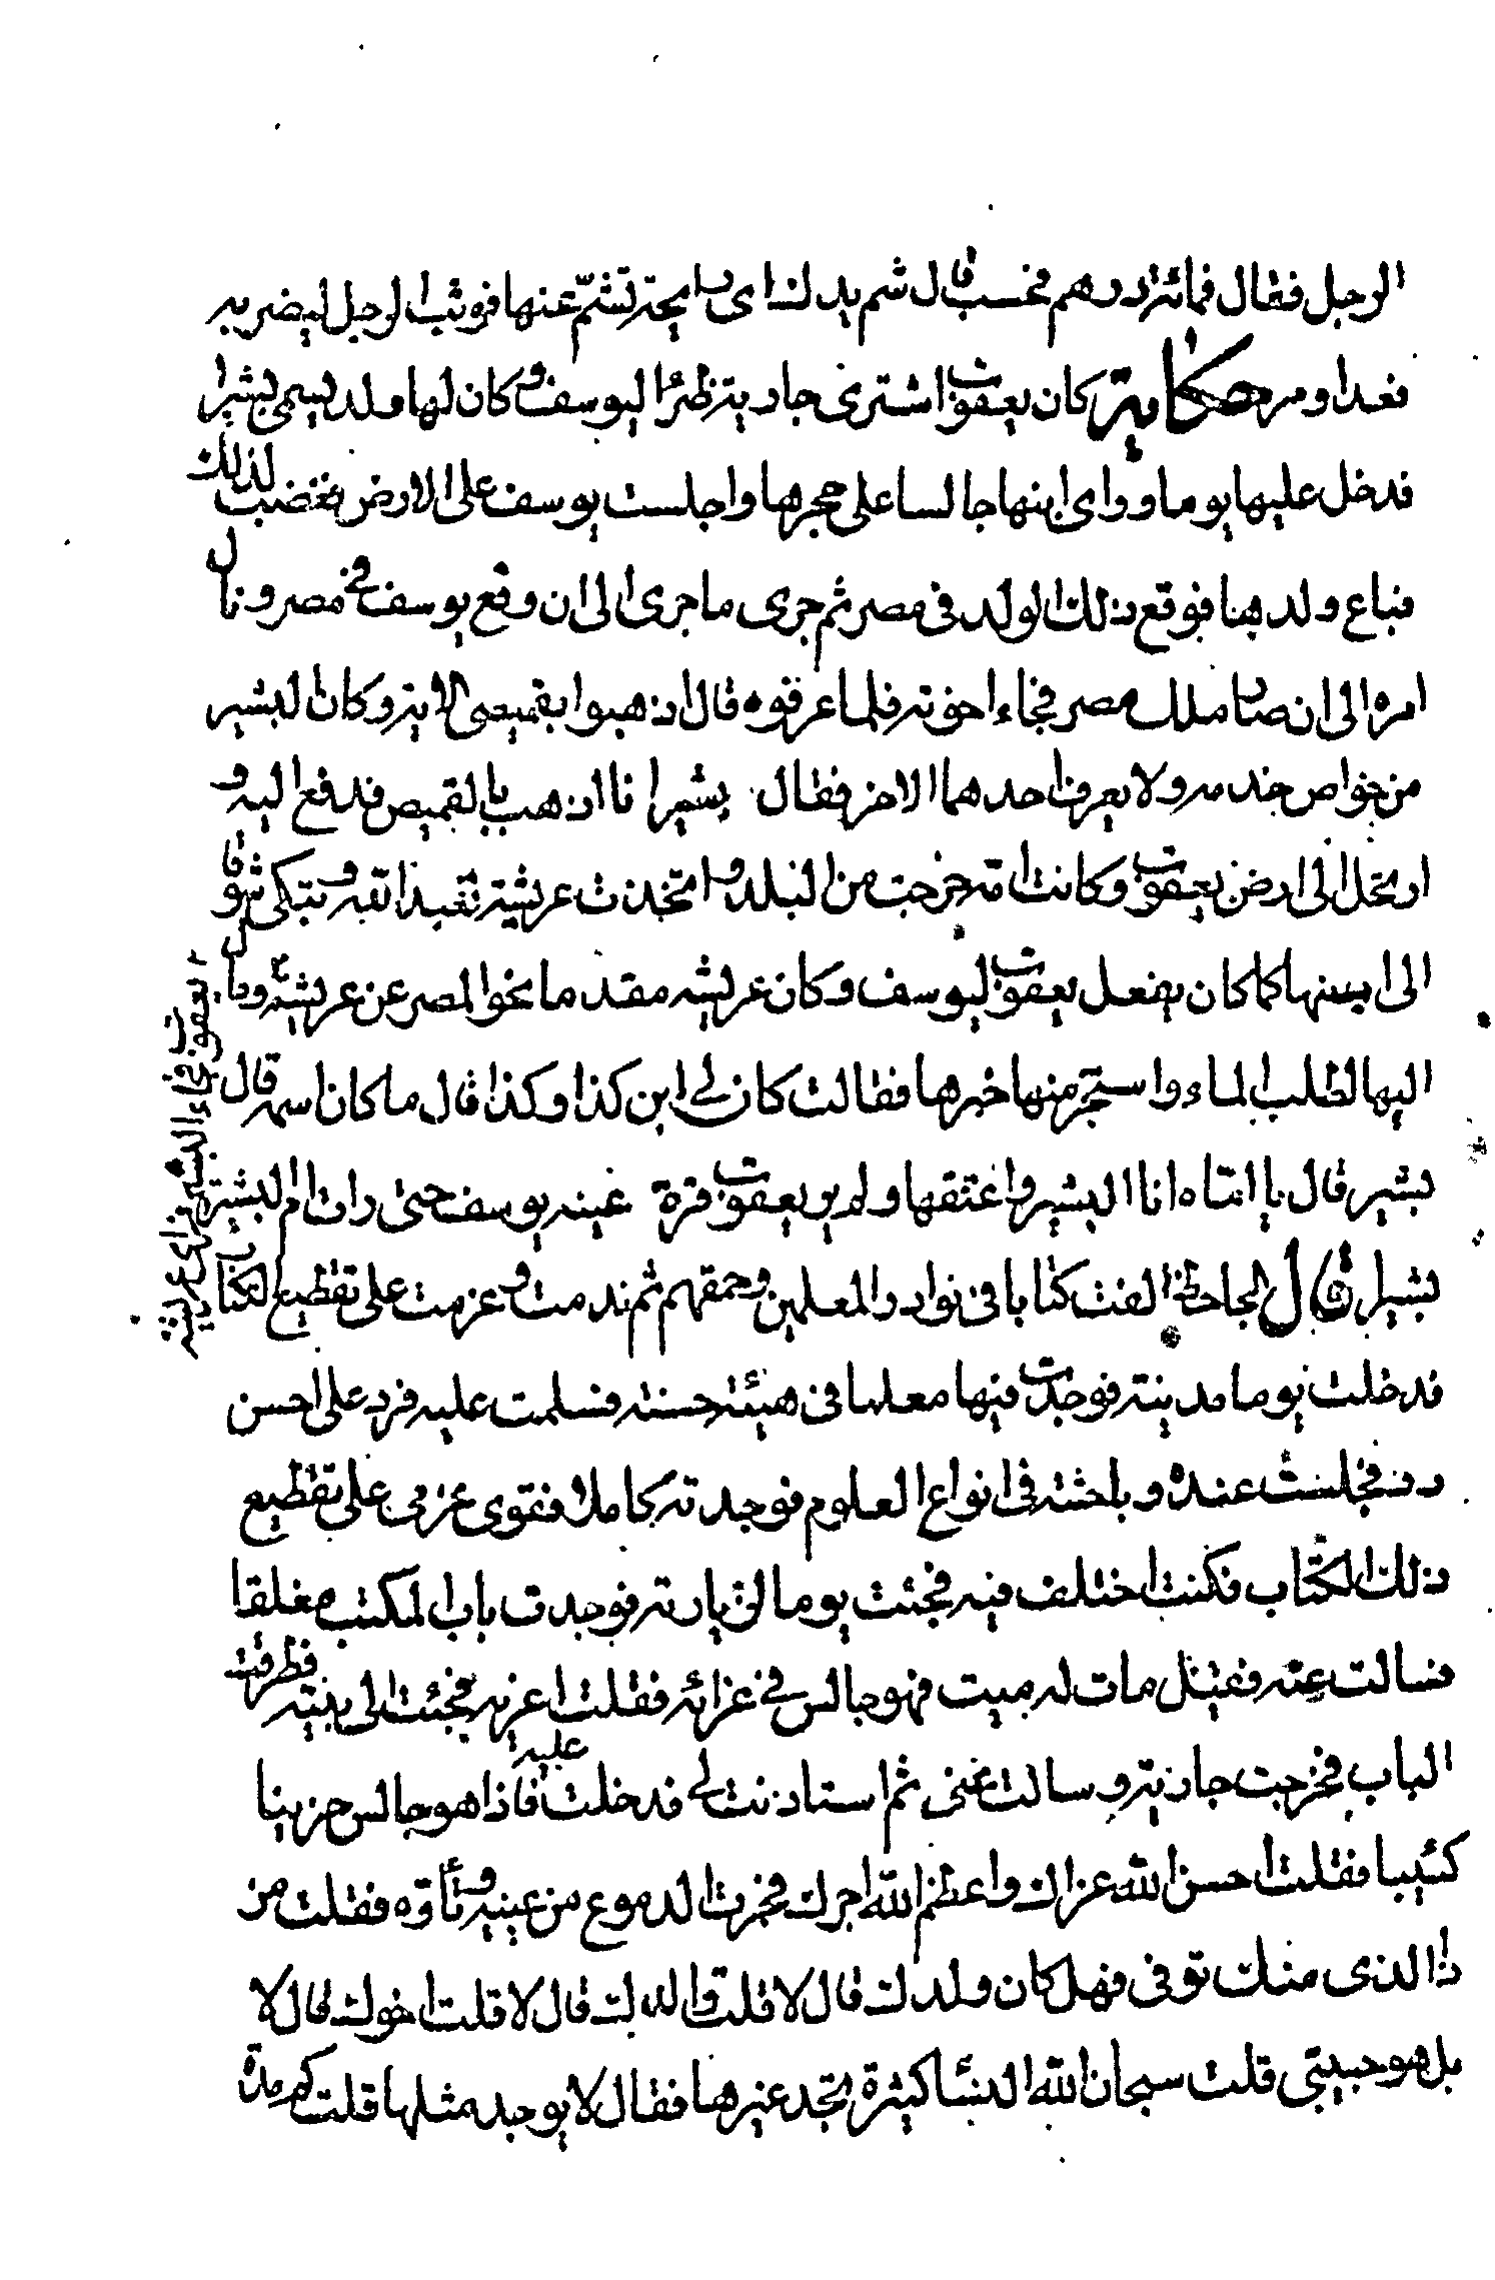 الرجل فقال فمائة درهم فحسب قال شم يدك اى رايحة تشمّ عنها فوثب الرجل ليضربه
فعدا ومر حكاية كان يعقوب اشترى جارية ظئرا ليوسف وكان لها ولد يسمى بشيرا
فدخل عليها يوما وراى ابنها جالسا على حجرها واجلست يوسف على الارض فغضب لذلك
فباع ولدها فوقع ذلك الولد فى مصر ثم جرى ما جرى الى ان وقع يوسف فى مصر ونال
امره الى ان صار ملك مصر فجاء اخوته فلما عرفوه قال اذهبوا بقميصى الاية وكان البشير
من خواص خدمه ولا يعرف احدهما الاخر فقال بشيرا نا اذهب بالقميص فدفع اليه و
ارتحل الى ارض يعقوب وكانت امّه خرجت من البلد واتخذت عريشة تعبد الله وتبكى شوقا
الى ابنها كما كان يفعل يعقوب ليوسف وكان عريشه مقدما نحو المصر عن عريشة ومال
اليها لطلب الماء واستخبر منها خبرها فقالت كان لى ابن كذا وكذا قال ما كان اسمه قال
بشير قال يا امّاه انا البشير واعتقها ولم ير يعقوب قرة عينه يوسف حتى رات ام البشير
بشيرا قال الجاحظ الفت كتابا فى نوادر المعلمين وحمقهم ثم ندمت وعزمت على تقطيع الكتاب
فدخلت يوما مدينة فوجدت فيها معلما فى هيئة حسنة فسلمت عليه فرد على احسن
رد فجلست عنده وباحثته فى انواع العلوم فوجدته كاملا فقوى عزمى على تقطيع
ذلك الكتاب فكنت اختلف فيه فجئت يوما الى زيارته فوجدت باب المكتب مغلقا
فسالت عنه فقيل مات له ميت فهو جالس فى عزائه فقلت اعزيه فجئت الى بيته فطرقت
الباب فخرجت جارية وسالت عنى ثم استاذنت لى فدخلت عليه فاذا هو جالس حزينا
كئيبا فقلت احسن الله عزاك واعظم الله اجرك فخرت الدموع من عينيه وتأوّه فقلت من
ذا الذى منك توفى فهل كان ولدك قال لا قلت والدك قال لا قلت اخوك قال لا
بل هو حبيبتى قلت سبحان الله النساء كثيرة تجد غيرها فقال لا يوجد مثلها قلت كم مدة
يعقوب فجاء البشير فراى عريشه